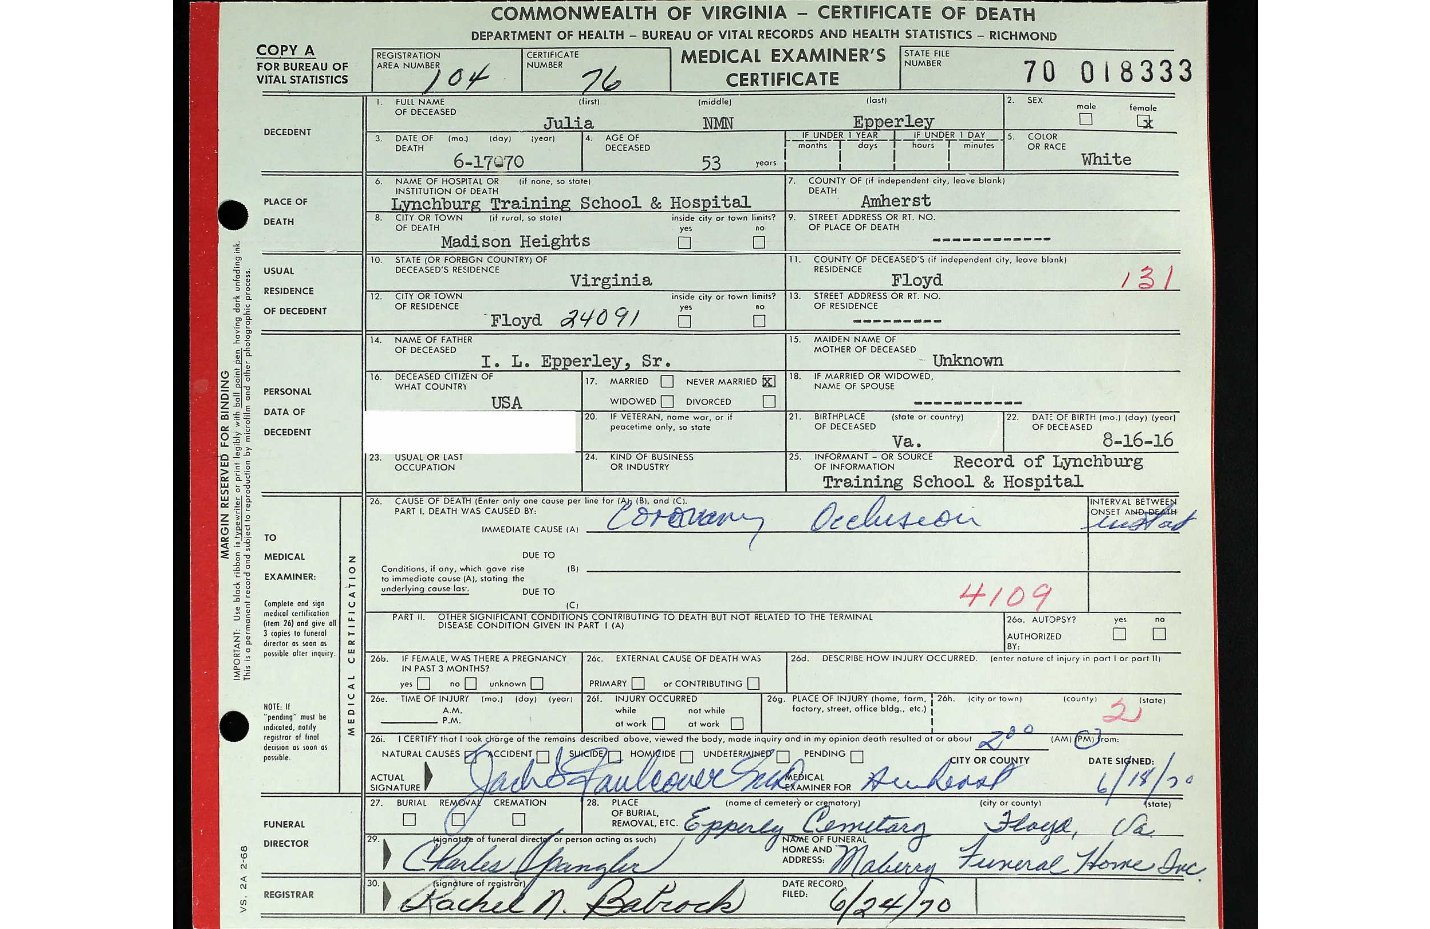 COMMONWEALTH OF VIRGINIA – CERTIFICATE OF DEATH
DEPARTMENT OF HEALTH – BUREAU OF VITAL RECORDS AND HEALTH STATISTICS – RICHMOND
COPY A
FOR BUREAU OF
VITAL STATISTICS
REGISTRATION
AREA NUMBER 104
CERTIFICATE
NUMBER 76
MEDICAL EXAMINER'S
CERTIFICATE
STATE FILE
NUMBER 70 018333
DECEDENT
1. FULL NAME (first) (middle) (last)
OF DECEASED
Julia NMN Epperley
2. SEX
male female
x
3. DATE OF (mo.) (day) (year)
DEATH
6-17-70
4. AGE OF
DECEASED
53 years
IF UNDER 1 YEAR IF UNDER 1 DAY
months days hours minutes
5. COLOR
OR RACE
White
PLACE OF
DEATH
6. NAME OF HOSPITAL OR (if none, so state)
INSTITUTION OF DEATH
Lynchburg Training School & Hospital
7. COUNTY OF (if independent city, leave blank)
DEATH
Amherst
8. CITY OR TOWN (if rural, so state) inside city or town limits?
OF DEATH yes no
Madison Heights
9. STREET ADDRESS OR RT. NO.
OF PLACE OF DEATH
------------
USUAL
RESIDENCE
OF DECEDENT
10. STATE (OR FOREIGN COUNTRY) OF
DECEASED'S RESIDENCE
Virginia
11. COUNTY OF DECEASED'S (if independent city, leave blank)
RESIDENCE
Floyd 131
12. CITY OR TOWN inside city or town limits?
OF RESIDENCE yes no
Floyd 24091
13. STREET ADDRESS OR RT. NO.
OF RESIDENCE
---------
PERSONAL
DATA OF
DECEDENT
14. NAME OF FATHER
OF DECEASED
I. L. Epperley, Sr.
15. MAIDEN NAME OF
MOTHER OF DECEASED
Unknown
16. DECEASED CITIZEN OF
WHAT COUNTRY
USA
17. MARRIED NEVER MARRIED X
WIDOWED DIVORCED
18. IF MARRIED OR WIDOWED,
NAME OF SPOUSE
------------
20. IF VETERAN, name war, or if
peacetime only, so state
21. BIRTHPLACE (state or country)
OF DECEASED
Va.
22. DATE OF BIRTH (mo.) (day) (year)
OF DECEASED
8-16-16
23. USUAL OR LAST
OCCUPATION
24. KIND OF BUSINESS
OR INDUSTRY
25. INFORMANT – OR SOURCE
OF INFORMATION
Record of Lynchburg
Training School & Hospital
MARGIN RESERVED FOR BINDING
IMPORTANT: Use black ribbon in typewriter or print legibly with ball point pen having dark unfading ink.
This is a permanent record and subject to reproduction by microfilm and other photographic process.
TO
MEDICAL
EXAMINER:
Complete and sign
medical certification
(item 26) and give all
3 copies to funeral
director as soon as
possible after inquiry.
NOTE: If
"pending" must be
indicated, notify
registrar of final
decision as soon as
possible.
MEDICAL CERTIFICATION
26. CAUSE OF DEATH (Enter only one cause per line for (A), (B), and (C).
PART I. DEATH WAS CAUSED BY:
IMMEDIATE CAUSE (A) Coronary Occlusion
INTERVAL BETWEEN
ONSET AND DEATH
DUE TO
Conditions, if any, which gave rise (B)
to immediate cause (A), stating the
underlying cause last. DUE TO
(C)
4109
PART II. OTHER SIGNIFICANT CONDITIONS CONTRIBUTING TO DEATH BUT NOT RELATED TO THE TERMINAL
DISEASE CONDITION GIVEN IN PART I (A)
26a. AUTOPSY? yes no
AUTHORIZED
BY:
26b. IF FEMALE, WAS THERE A PREGNANCY
IN PAST 3 MONTHS?
yes no unknown
26c. EXTERNAL CAUSE OF DEATH WAS
PRIMARY or CONTRIBUTING
26d. DESCRIBE HOW INJURY OCCURRED. (enter nature of injury in part I or part II)
26e. TIME OF INJURY (mo.) (day) (year)
A.M.
P.M.
26f. INJURY OCCURRED
while not while
at work at work
26g. PLACE OF INJURY (home, farm,
factory, street, office bldg., etc.)
26h. (city or town) (county) (state)
2
26i. I CERTIFY that I took charge of the remains described above, viewed the body, made inquiry and in my opinion death resulted at or about 2 00 (AM) (PM) from:
NATURAL CAUSES ACCIDENT SUICIDE HOMICIDE UNDETERMINED PENDING
ACTUAL
SIGNATURE
MEDICAL
EXAMINER FOR
CITY OR COUNTY
Amherst
DATE SIGNED:
6/18/70
FUNERAL
DIRECTOR
27. BURIAL REMOVAL CREMATION
28. PLACE
OF BURIAL,
REMOVAL, ETC.
(name of cemetery or crematory) (city or county) (state)
Epperly Cemetary Floyd, Va.
29. (signature of funeral director or person acting as such)
Charles Spangler
NAME OF FUNERAL
HOME AND
ADDRESS:
Maberry Funeral Home Inc.
REGISTRAR
30. (signature of registrar)
Rachel N. Babcock
DATE RECORD
FILED: 6/24/70
VS. 2A 2-68